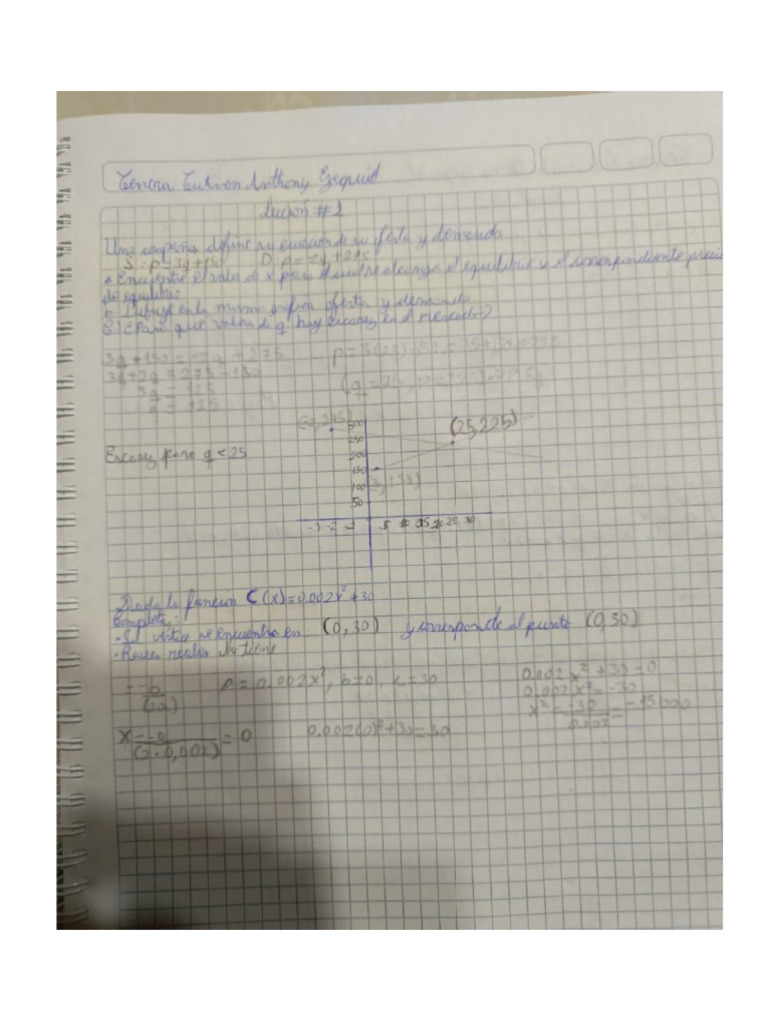 Anthony
Lección #1
Una empresa define su ecuación de su oferta y demanda
S: p=3q+150 D: p=-2q+275
a. Encuentre el valor de x para el cual se alcanza el equilibrio y el correspondiente precio
de equilibrio
b. Dibuje en la misma gráfica oferta y demanda
¿Para que valor de q hay escasez en el mercado?
3q+150=-2q+275
3q+2q=275-150
5q=125
q=125
Escasez para q<25
(25,225)
300
250
200
150
100
50
-3 -2 5 10 15 20 25 30
Dada la función C(x)=0.002x²+30
Complete:
-Su vértice se encuentra en (0,30) y corresponde al punto (0,30)
-Raíces reales No tiene
-b/(2a) b=0, c=30
x=-0/(2·0,002)=0 0.002(0)²+30=30
0.002x²+30=0
0.002x²=-30
x²=-30/0.002=-15000